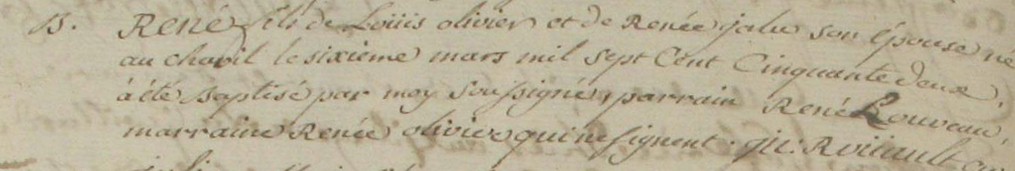 B. René fils de Loüis olivier et de Renée jalu son épouse né
au chavil le sixieme mars mil sept Cent Cinquante deux,
à été Baptisé par moy soussigné, parrain René Louveau,
marraine Renée olivier qui ne signent.